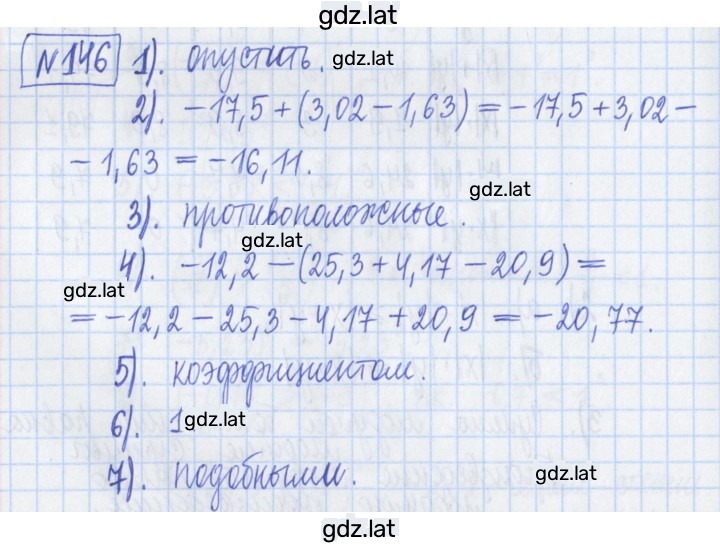 gdz.lat
№146 1). опустить. gdz.lat
2). −17,5 + (3,02 − 1,63) = −17,5 + 3,02 −
− 1,63 = −16,11.
gdz.lat
3). противоположные.
gdz.lat
4). −12,2 − (25,3 + 4,17 − 20,9) =
gdz.lat
= −12,2 − 25,3 − 4,17 + 20,9 = −20,77.
5). коэффициентом.
6). 1 gdz.lat
7). подобными. gdz.lat
gdz.lat